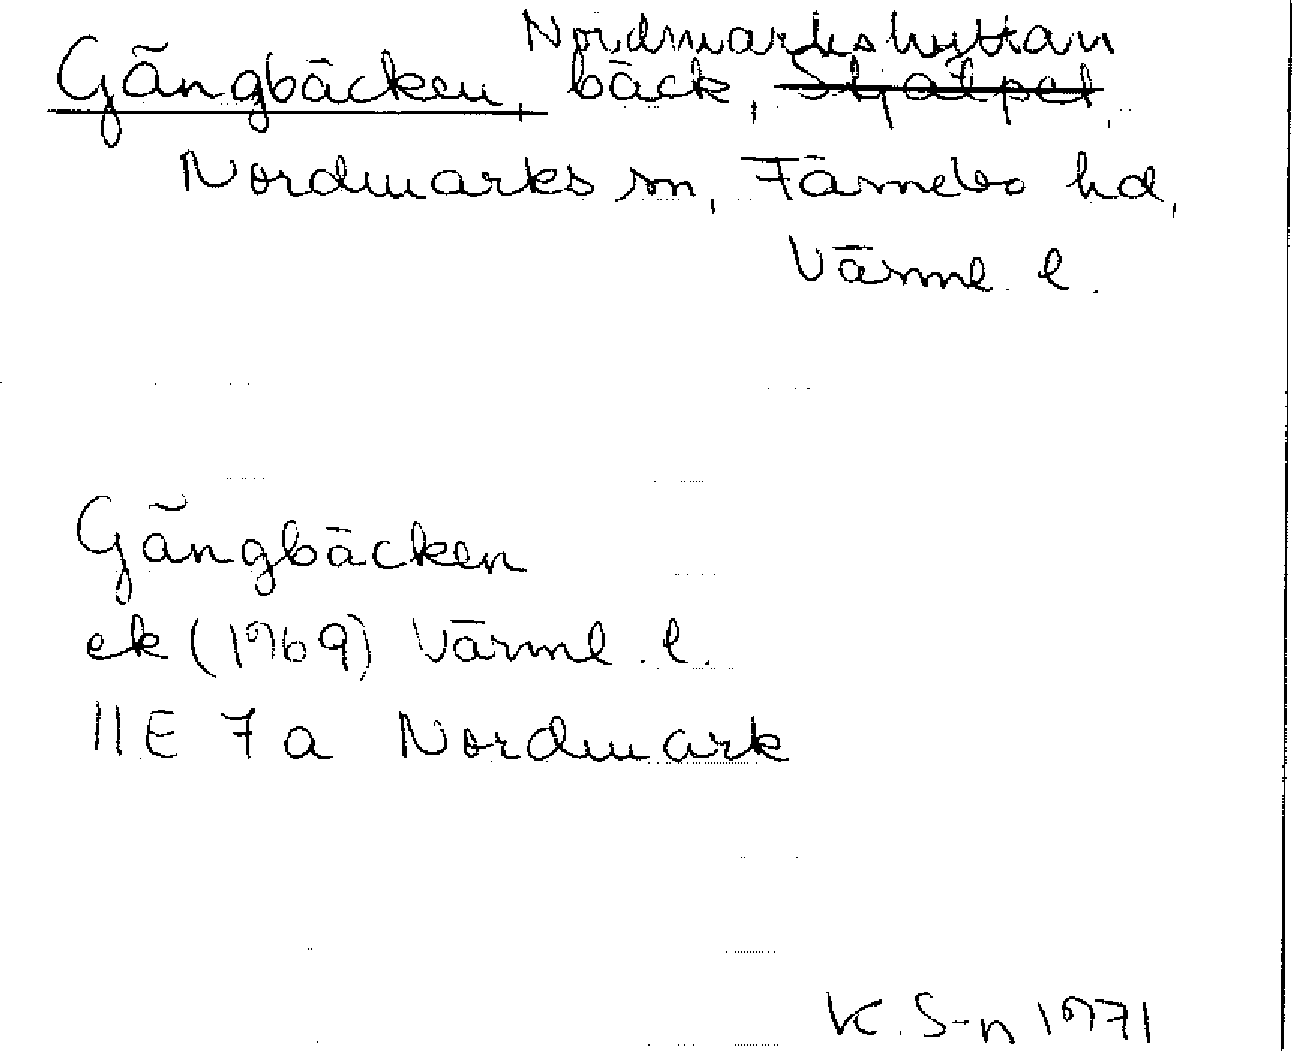 Nordmarkshyttan
Gångbäcken, bäck, Stjälpet,
Nordmarks sn, Färnebo hd,
Värml. l.
Gångbäcken
ek (1969) Värml. l.
11E 7a Nordmark
K. S-n 1971